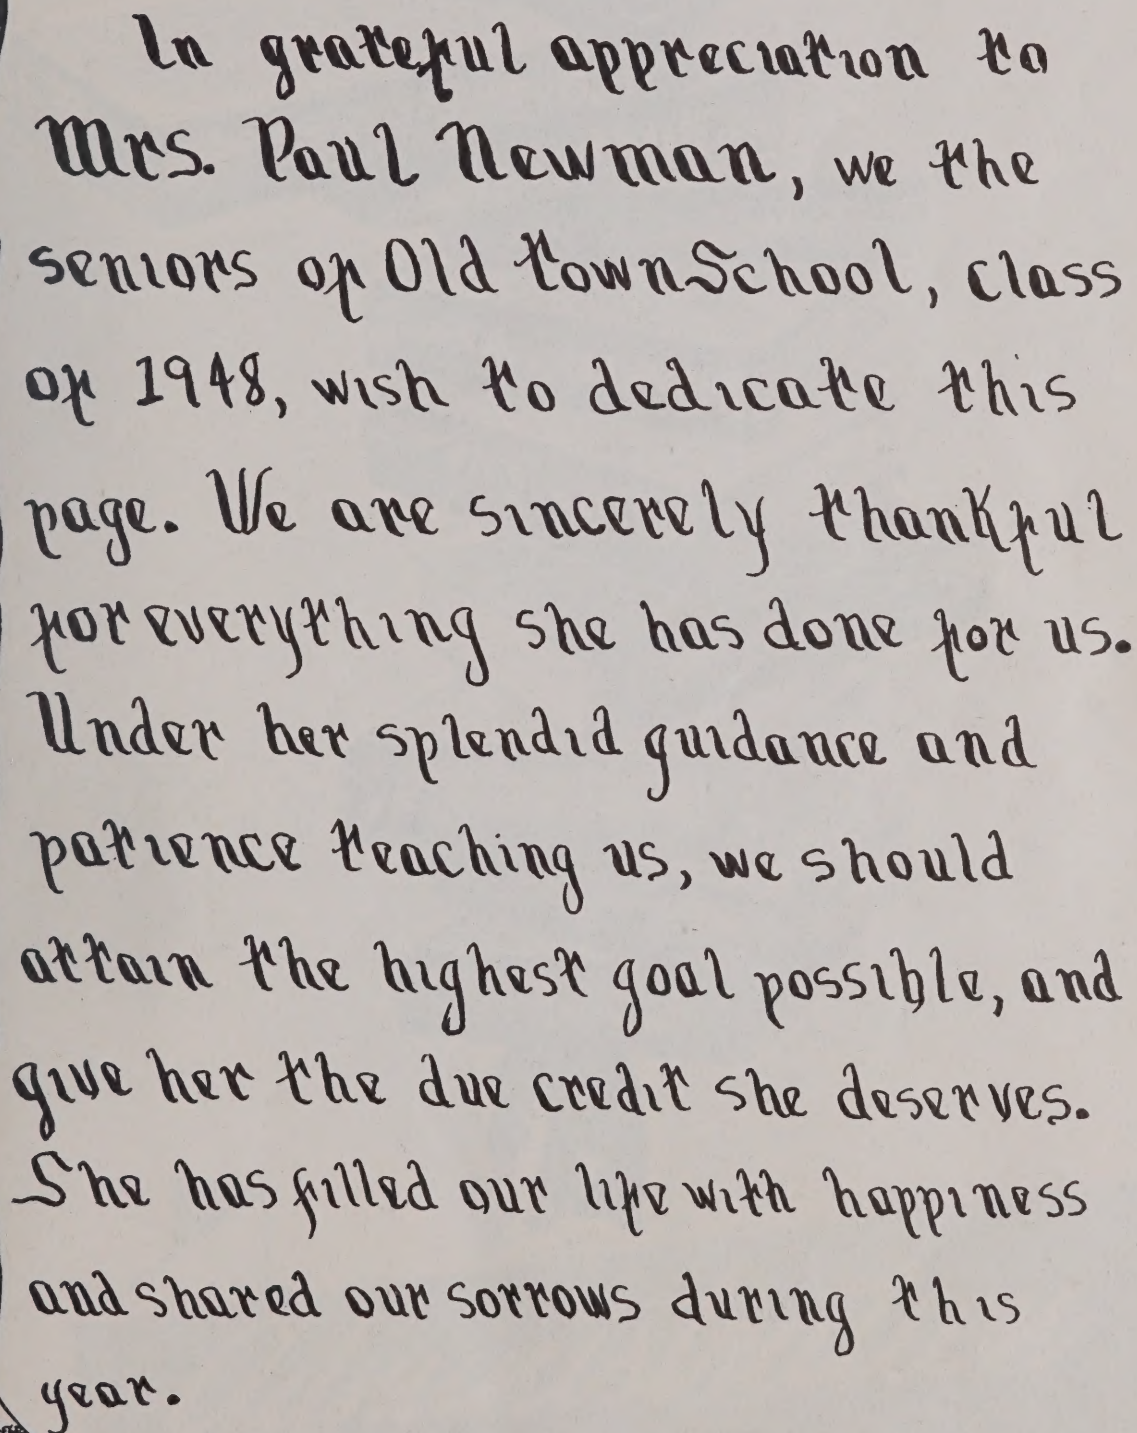 In grateful appreciation to
Mrs. Paul Newman, we the
seniors of Old Town School, class
of 1948, wish to dedicate this
page. We are sincerely thankful
for everything she has done for us.
Under her splendid guidance and
patience teaching us, we should
attain the highest goal possible, and
give her the due credit she deserves.
She has filled our life with happiness
and shared our sorrows during this
year.